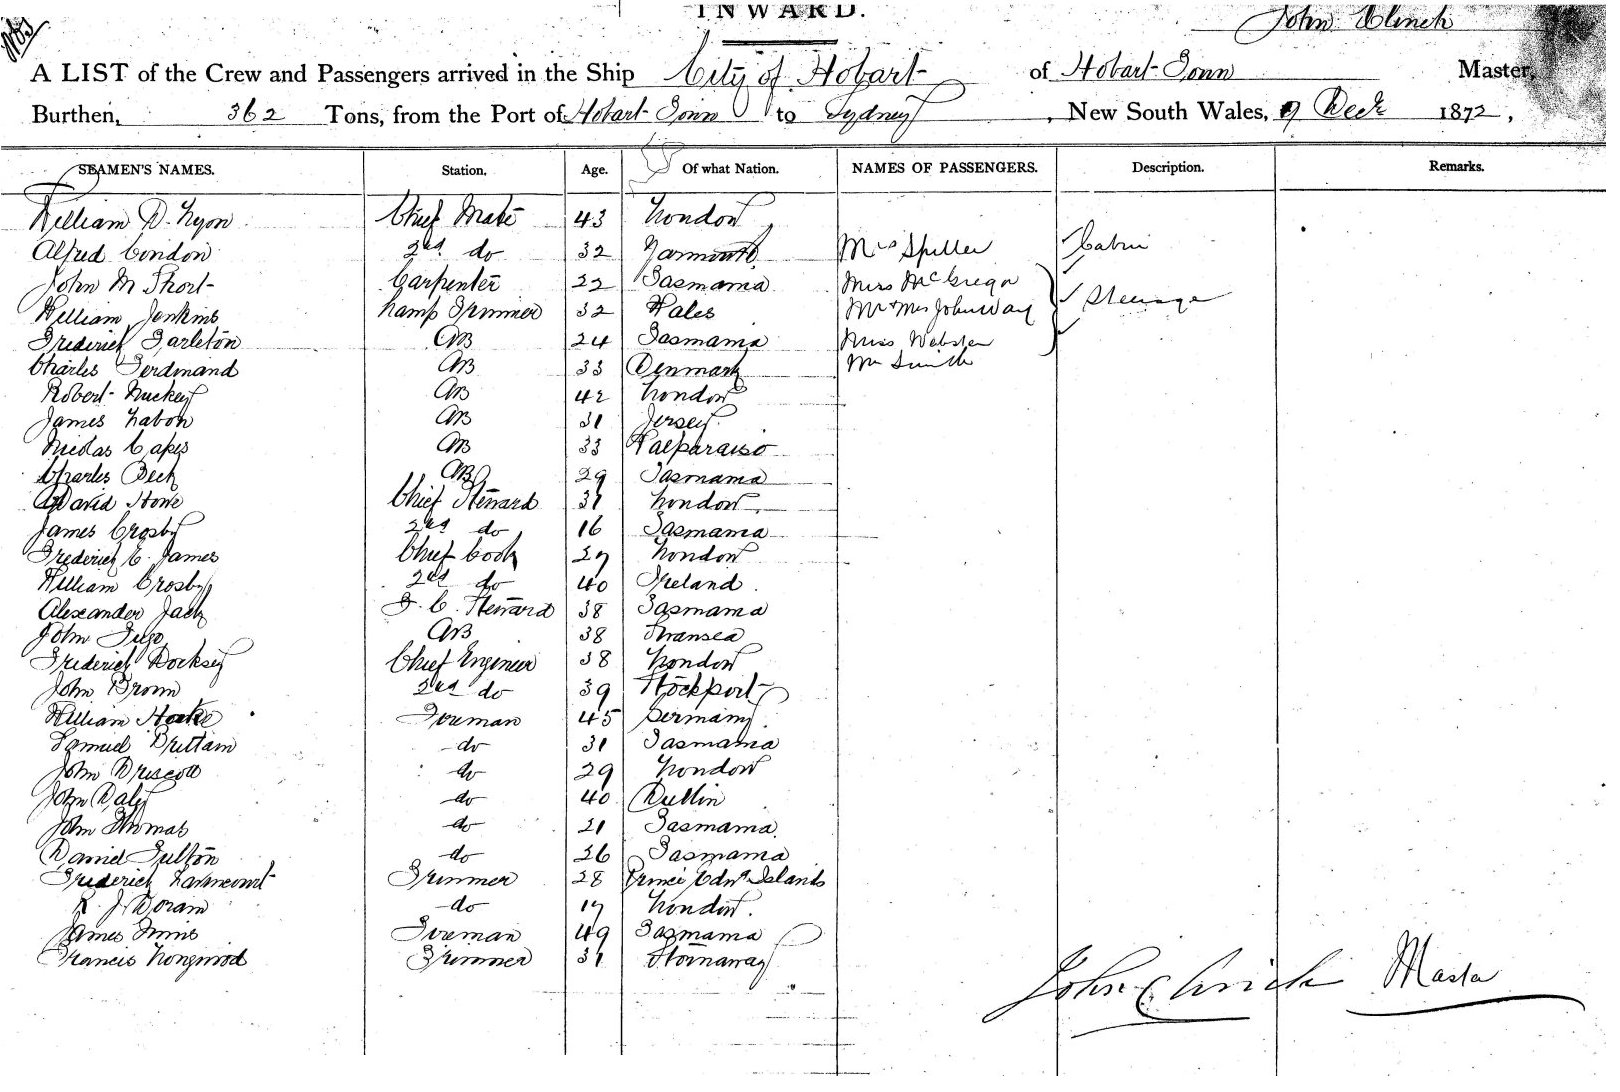 INWARD.
John Clinch
A LIST of the Crew and Passengers arrived in the Ship City of Hobart of Hobart Town Master,
Burthen, 362 Tons, from the Port of Hobart Town to Sydney, New South Wales, 9 Decr 1872,
SEAMEN'S NAMES. Station. Age. Of what Nation. NAMES OF PASSENGERS. Description. Remarks.
William D. Lyon Chief Mate 43 London
Alfred Condon 2nd do 32 Yarmouth Mrs Spiller Cabin
John M Short Carpenter 22 Tasmania Miss McGregor
William Jenkins Lamp Trimmer 32 Wales Mr & Mrs John Way Steerage
Frederick Tarleton AB 24 Tasmania Miss Webster
Charles Ferdinand AB 33 Denmark Mr Smith
Robert Luckey AB 42 London
James Labon AB 31 Jersey
Nicolas Capes AB 33 Valparaiso
Charles Beck AB 29 Tasmania
David Howe Chief Steward 31 London
James Crosby 2nd do 16 Tasmania
Frederick E. James Chief Cook 27 London
William Crosby 2nd do 40 Ireland
Alexander Jack F. C. Steward 38 Tasmania
John AB 38 Swansea
Frederick Docksey Chief Engineer 38 London
John Brown 2nd do 39 Stockport
William Fireman 45 Germany
Samuel Brittain do 31 Tasmania
John Driscoll do 29 London
John Daly do 40 Dublin
John Thomas do 21 Tasmania
Daniel Fulton do 26 Tasmania
Frederick Trimmer 28 Prince Edwd Islands
R. J. Doram do 17 London.
James Fireman 49 Tasmania
Francis Longwood Trimmer 31 Stornaway
John Clinch Master